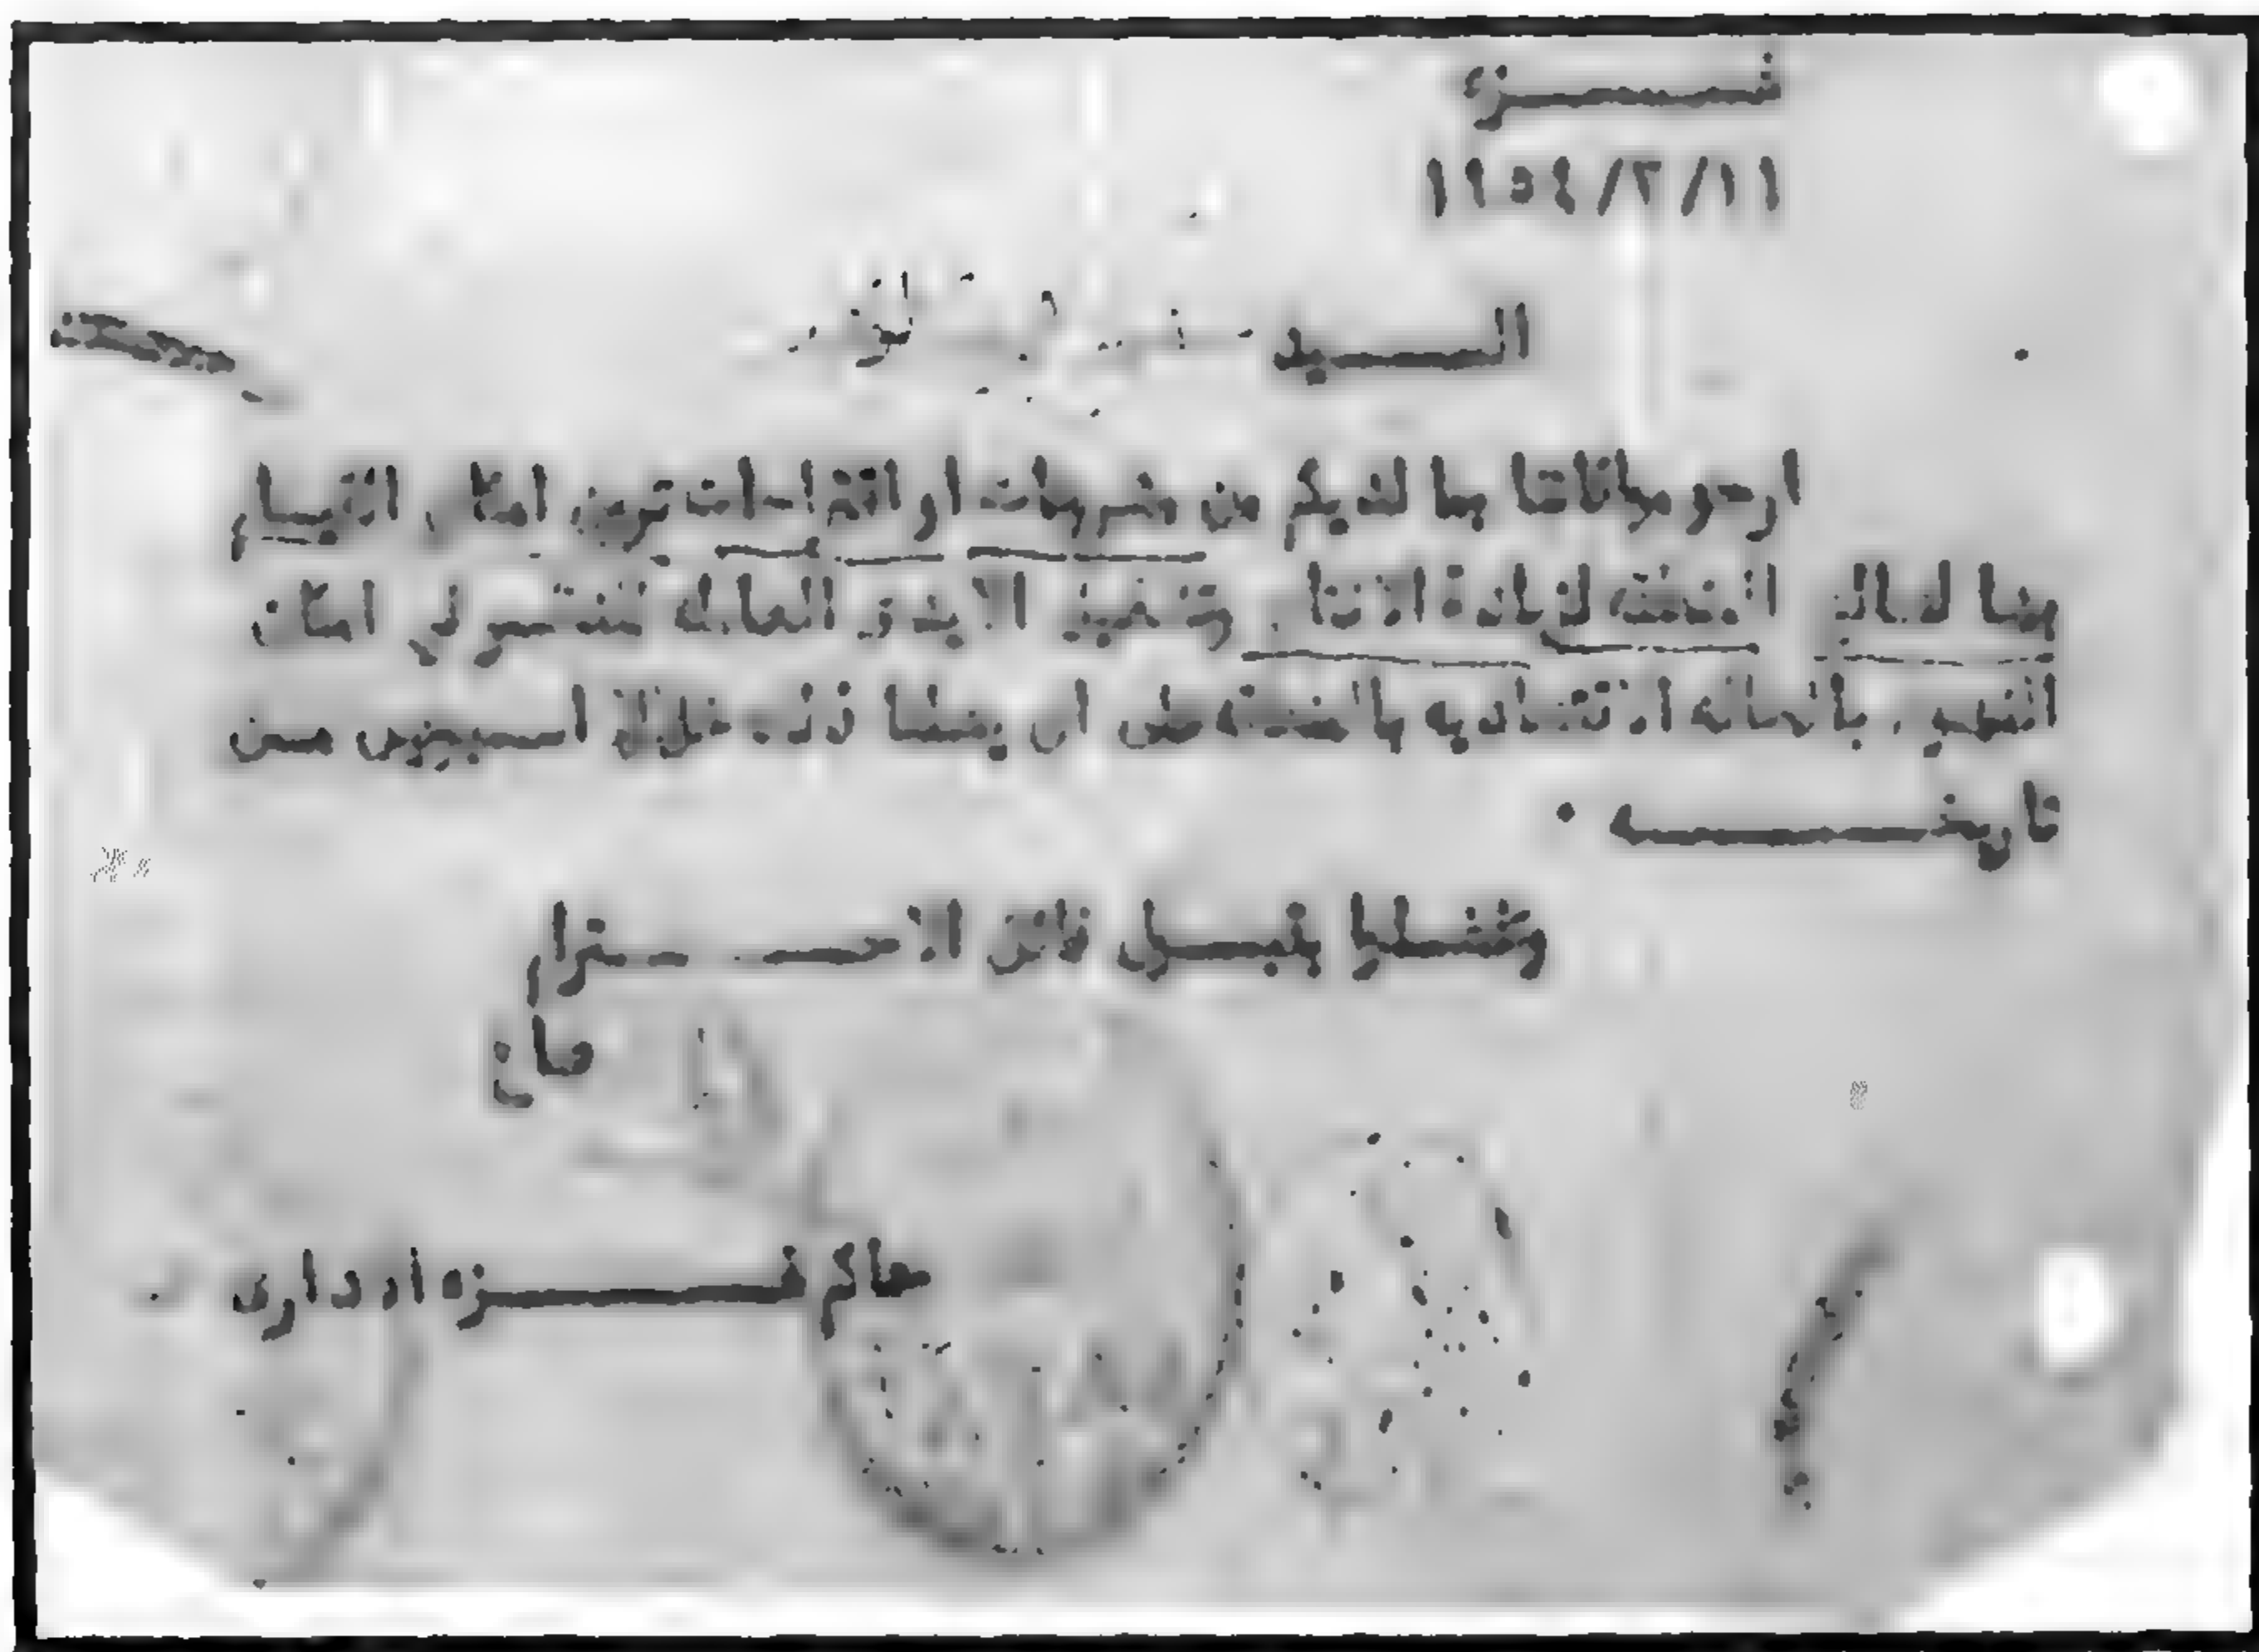 غـــزة
١١/٢/١٩٥٤
الســـيد
ارجو موافاتنا بما لديكم من مشروعات او اقتراحات ترون امكان القيام
بها لصالح المنطقة لزيادة الانتاج وتشغيل الايدى العاملة للنظر في امكان
بالحالة الاقتصادية بالمنطقة على ان يصلنا ذلك خلال اسبوعين مـن
تاريخـــه .
وتفضلوا بقبـــول فائق الاحـــترام
حاكم غـــزه الادارى